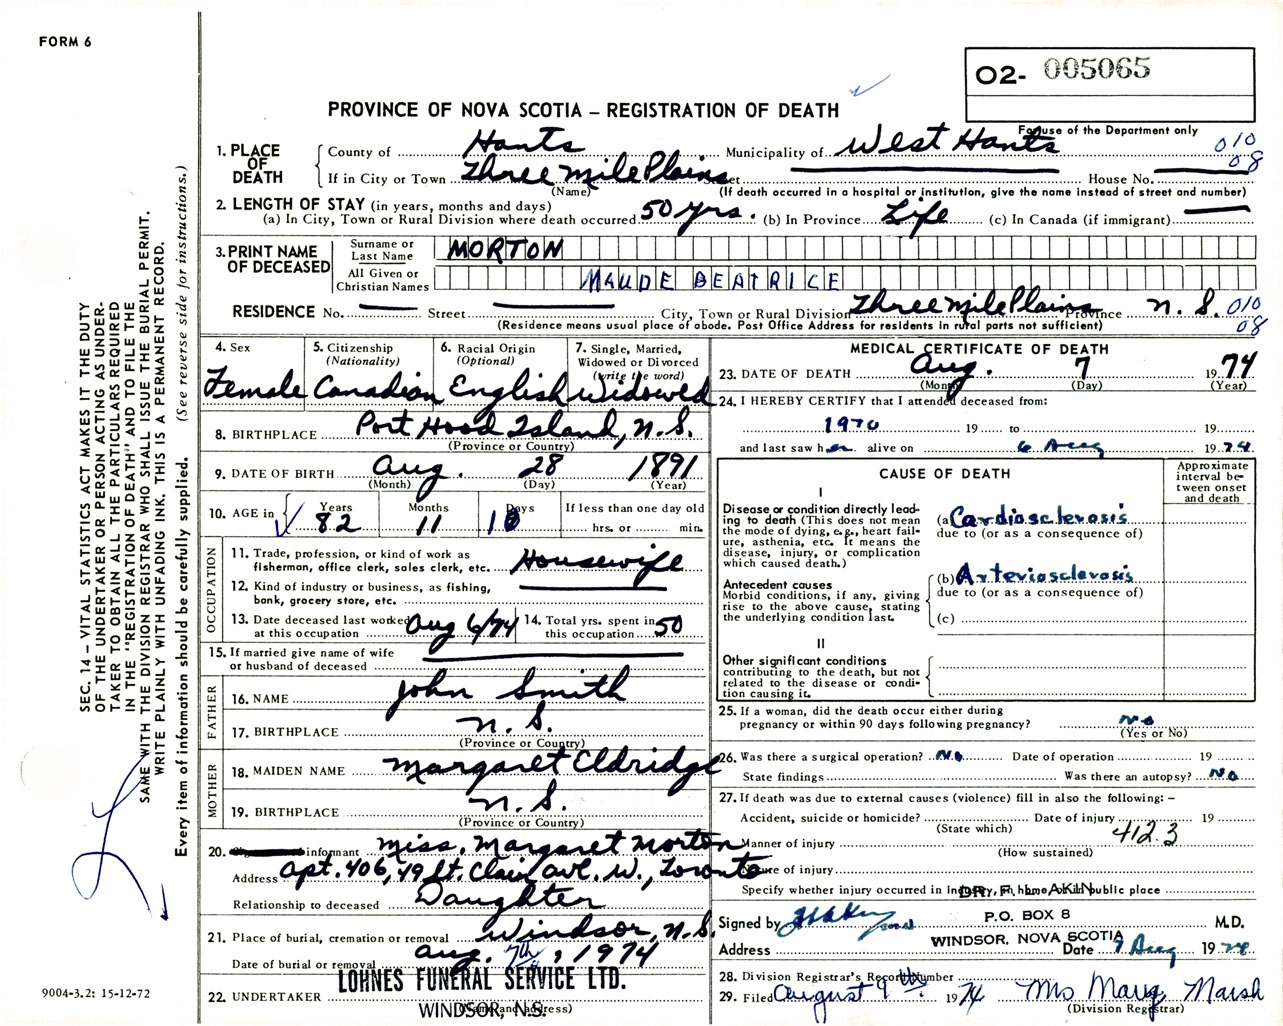 FORM 6
O2- 005065
PROVINCE OF NOVA SCOTIA – REGISTRATION OF DEATH
For use of the Department only
1. PLACE OF DEATH County of Hants Municipality of West Hants 010 08
If in City or Town Three Mile Plains Street House No.
(Name) (If death occurred in a hospital or institution, give the name instead of street and number)
2. LENGTH OF STAY (in years, months and days)
(a) In City, Town or Rural Division where death occurred 50 yrs. (b) In Province Life (c) In Canada (if immigrant)
3. PRINT NAME OF DECEASED Surname or Last Name MORTON
All Given or Christian Names MAUDE BEATRICE
RESIDENCE No. Street City, Town or Rural Division Three Mile Plains Province N.S. 010 08
(Residence means usual place of abode. Post Office Address for residents in rural parts not sufficient)
4. Sex 5. Citizenship (Nationality) 6. Racial Origin (Optional) 7. Single, Married, Widowed or Divorced (write the word)
Female Canadian English Widowed
8. BIRTHPLACE Port Hood Island, N.S.
(Province or Country)
9. DATE OF BIRTH Aug. 28 1891
(Month) (Day) (Year)
10. AGE in Years Months Days If less than one day old
82 11 10 hrs. or min.
OCCUPATION
11. Trade, profession, or kind of work as fisherman, office clerk, sales clerk, etc. Housewife
12. Kind of industry or business, as fishing, bank, grocery store, etc.
13. Date deceased last worked at this occupation Aug 6/74 14. Total yrs. spent in this occupation 50
15. If married give name of wife or husband of deceased
FATHER
16. NAME John Smith
17. BIRTHPLACE N.S.
(Province or Country)
MOTHER
18. MAIDEN NAME Margaret Eldridge
19. BIRTHPLACE N.S.
(Province or Country)
20. informant Miss. Margaret Morton
Address Apt. 406, 49 St. Clair Ave. W., Toronto
Relationship to deceased Daughter
21. Place of burial, cremation or removal Windsor, N.S.
Date of burial or removal Aug. 7th, 1974
22. UNDERTAKER LOHNES FUNERAL SERVICE LTD.
WINDSOR, N.S.
(Name and address)
MEDICAL CERTIFICATE OF DEATH
23. DATE OF DEATH Aug. 7 1974
(Month) (Day) (Year)
24. I HEREBY CERTIFY that I attended deceased from:
1970 19 to 19
and last saw her alive on 6 Aug 1974
CAUSE OF DEATH
Approximate interval between onset and death
I
Disease or condition directly leading to death (This does not mean the mode of dying, e.g., heart failure, asthenia, etc. It means the disease, injury, or complication which caused death.)
(a) Cardiosclerosis
due to (or as a consequence of)
Antecedent causes
Morbid conditions, if any, giving rise to the above cause, stating the underlying condition last.
(b) Arteriosclerosis
due to (or as a consequence of)
(c)
II
Other significant conditions contributing to the death, but not related to the disease or condition causing it.
25. If a woman, did the death occur either during pregnancy or within 90 days following pregnancy? No
(Yes or No)
26. Was there a surgical operation? No Date of operation 19
State findings Was there an autopsy? No
27. If death was due to external causes (violence) fill in also the following: –
Accident, suicide or homicide? Date of injury 19
(State which) 412.3
Manner of injury
(How sustained)
Nature of injury
Specify whether injury occurred in industry, in home, or in public place
DR. F. L. AKIN
Signed by P.O. BOX 8 M.D.
WINDSOR, NOVA SCOTIA
Address Date 7 Aug 1974
28. Division Registrar's Record Number
29. Filed August 9th. 1974 Mrs Marsh
(Division Registrar)
SEC. 14 – VITAL STATISTICS ACT MAKES IT THE DUTY
OF THE UNDERTAKER OR PERSON ACTING AS UNDER-
TAKER TO OBTAIN ALL THE PARTICULARS REQUIRED
IN THE "REGISTRATION OF DEATH" AND TO FILE THE
SAME WITH THE DIVISION REGISTRAR WHO SHALL ISSUE THE BURIAL PERMIT.
WRITE PLAINLY WITH UNFADING INK. THIS IS A PERMANENT RECORD.
Every item of information should be carefully supplied. (See reverse side for instructions.)
9004-3.2: 15-12-72